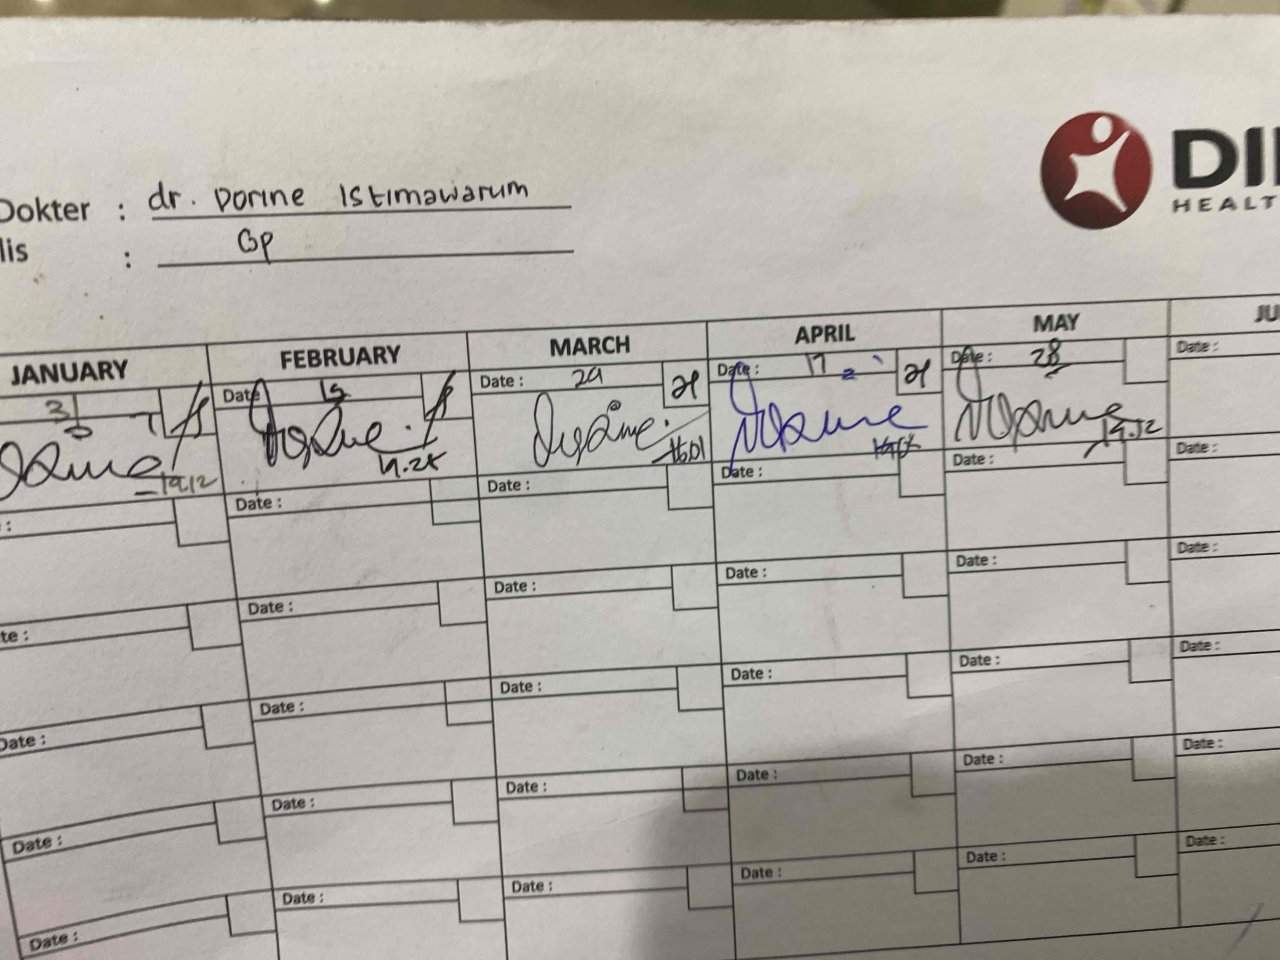 DI
HEALT
Dokter : dr. Dorine Istimawarum
lis : Gp
JANUARY FEBRUARY MARCH APRIL MAY JU
31 Date : 15 Date : 29 Date : 17 Date : 28 Date :
19.12 16.01 19.12
: Date : Date : Date : Date : Date :
te : Date : Date : Date : Date : Date :
Date : Date : Date : Date : Date : Date :
Date : Date : Date : Date : Date : Date :
Date : Date : Date : Date : Date : Date :